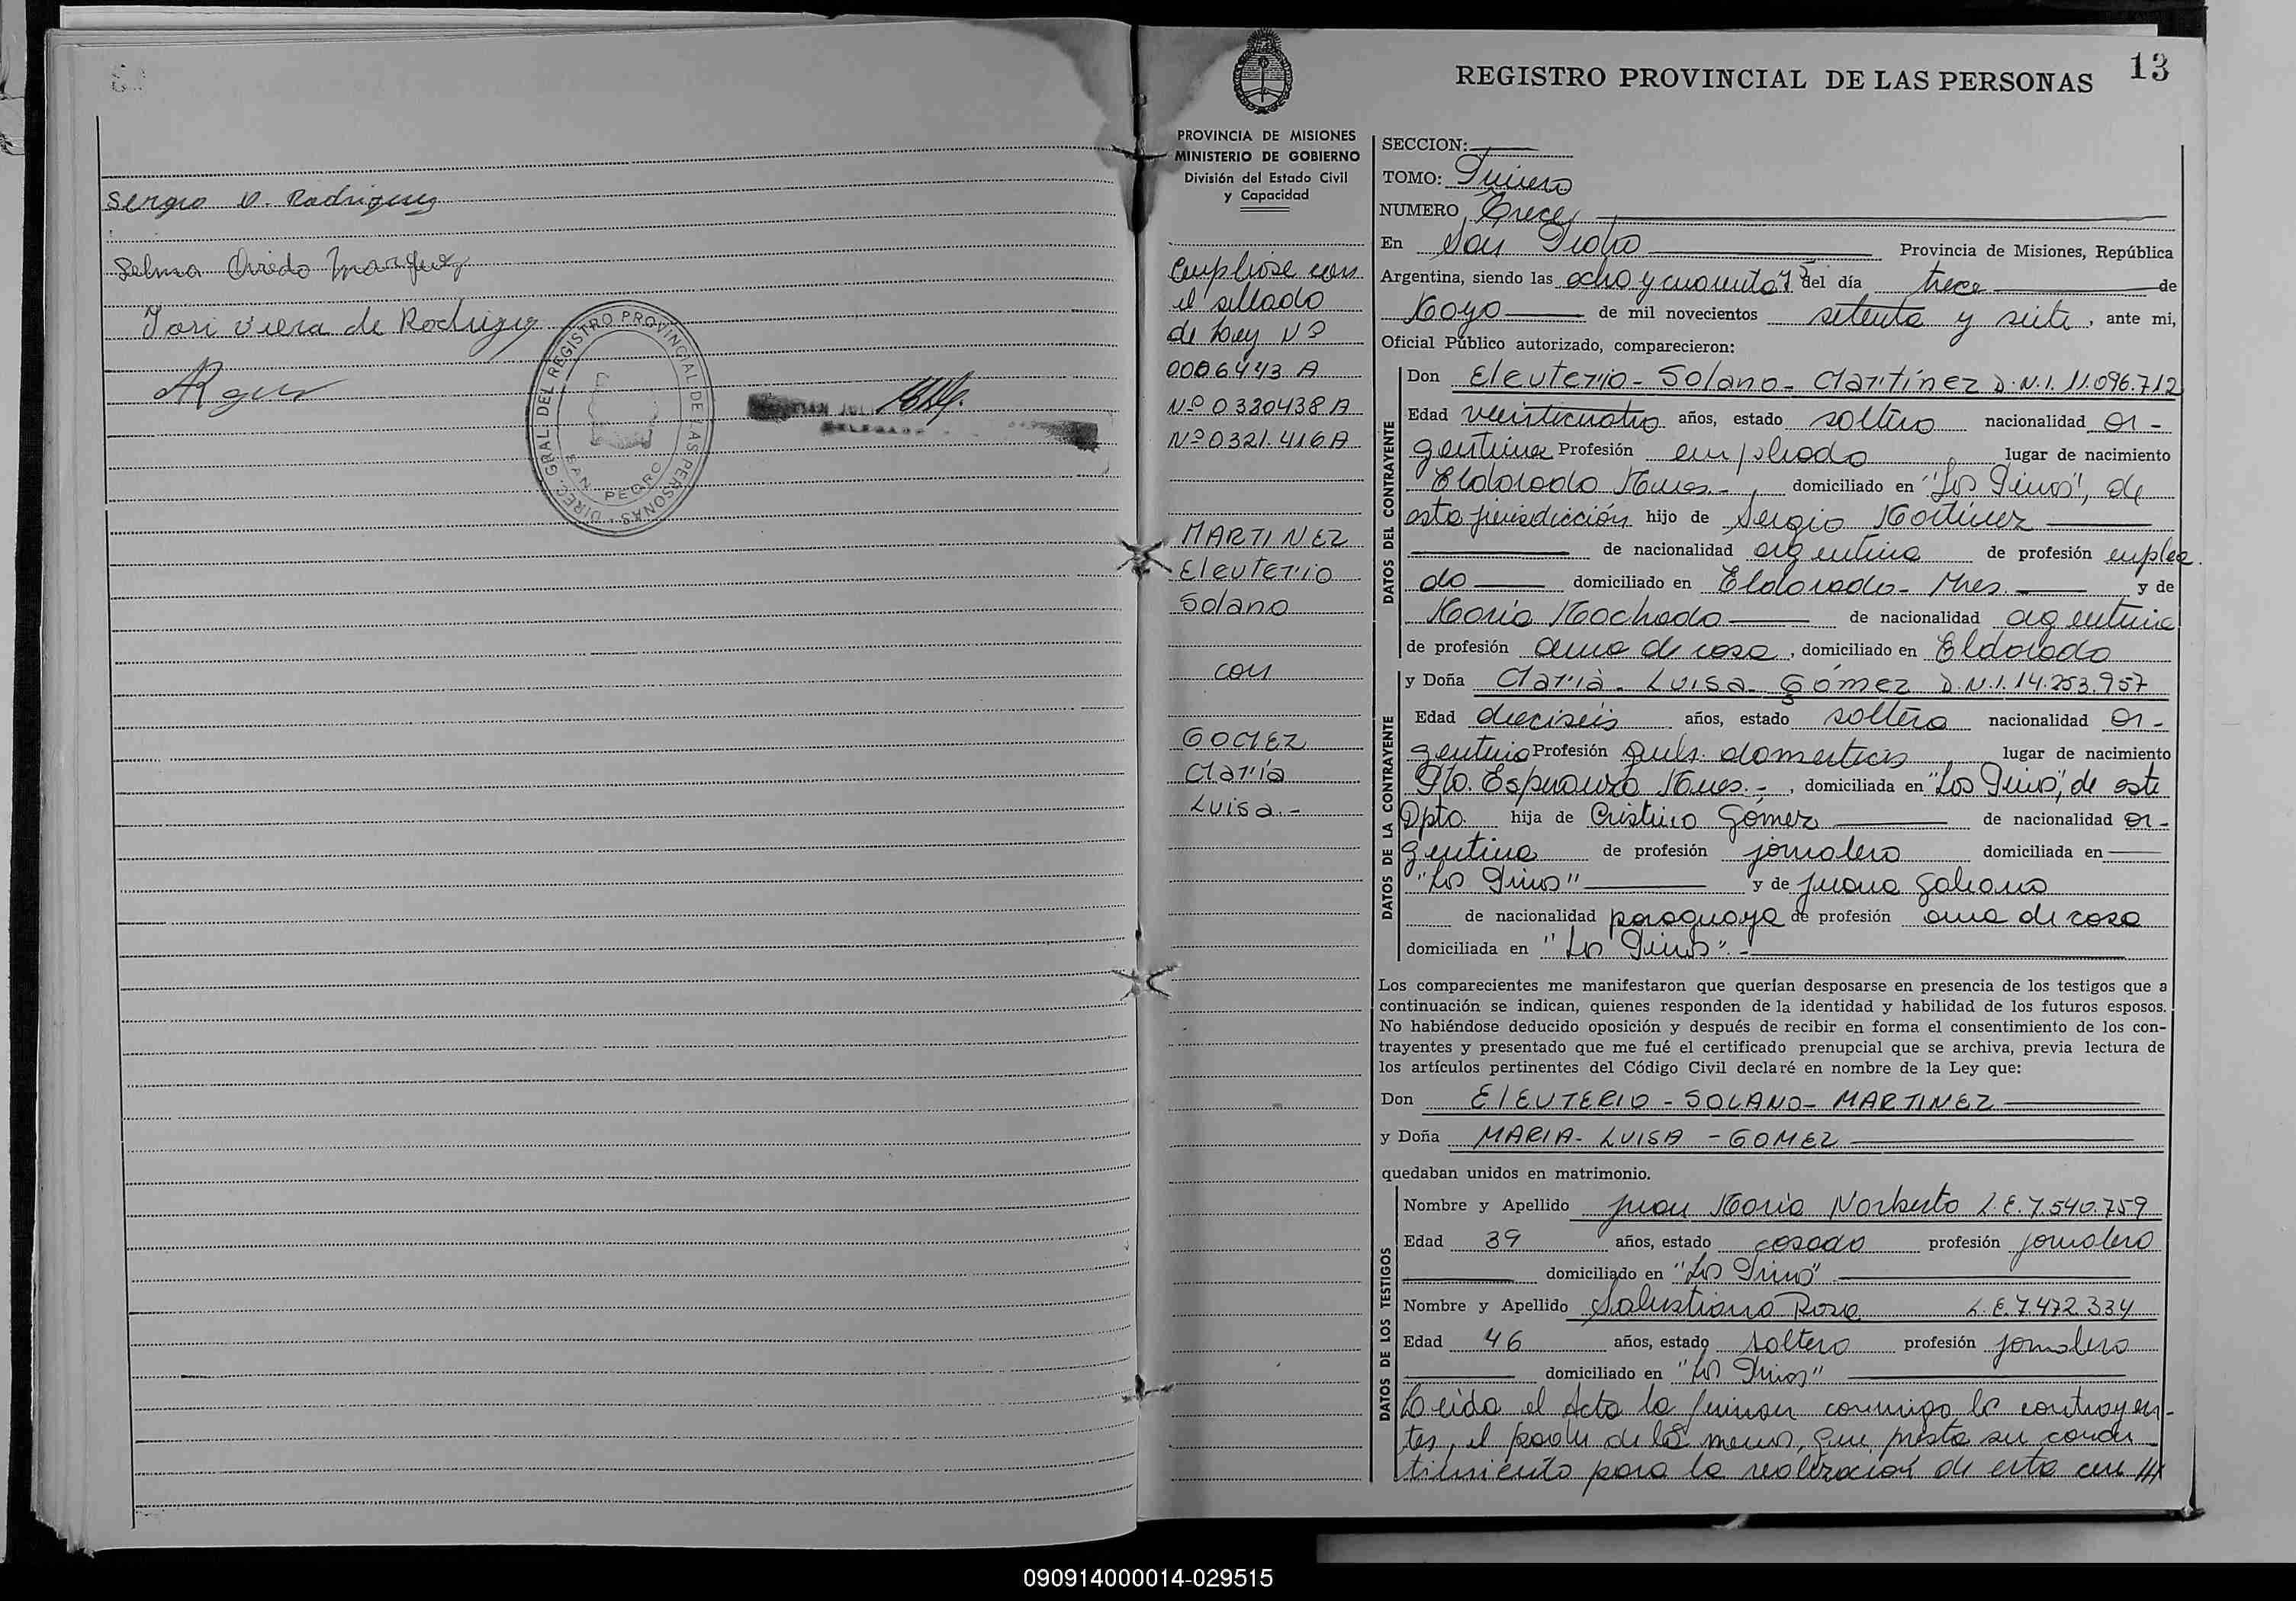 Sergio D. Rodriguez
Selma Oviedo Marquez
Viera de Rodriguez
DIREC. GRAL. DEL REGISTRO PROVINCIAL DE LAS PERSONAS
SAN PEDRO
DELEGADO
13
REGISTRO PROVINCIAL DE LAS PERSONAS
PROVINCIA DE MISIONES
MINISTERIO DE GOBIERNO
División del Estado Civil
y Capacidad
Cumpliose con
el sellado
de Ley Nº
0006443 A
Nº 0320438 A
Nº 0321.416 A
MARTINEZ
Eleuterio
Solano
con
GOMEZ
María
Luisa.-
SECCION:
TOMO: Primero
NUMERO Trece
En San Pedro Provincia de Misiones, República
Argentina, siendo las ocho y cuarenta del día trece de
Mayo de mil novecientos setenta y siete, ante mi,
Oficial Público autorizado, comparecieron:
DATOS DEL CONTRAYENTE
Don Eleuterio - Solano - Martínez D.N.I. 11.096.712
Edad veinticuatro años, estado soltero nacionalidad ar-
gentina Profesión empleado lugar de nacimiento
Eldorado Mnes.-, domiciliado en "Los Pinos", de
esta jurisdicción hijo de Sergio Martinez
de nacionalidad argentina de profesión emplea
do domiciliado en Eldorado - Mnes. y de
María Machado de nacionalidad argentina
de profesión ama de casa, domiciliado en Eldorado
DATOS DE LA CONTRAYENTE
y Doña María - Luisa - Gómez D.N.I. 14.253.957
Edad dieciseis años, estado soltera nacionalidad ar-
gentina Profesión queh. domesticos lugar de nacimiento
Pto. Esperanza Mnes.-, domiciliada en "Los Pinos", de este
Dpto. hija de Cristino Gómez de nacionalidad ar-
gentina de profesión jornalero domiciliada en
"Los Pinos" y de Juana Galeano
de nacionalidad paraguaya de profesión ama de casa
domiciliada en "Los Pinos".-
Los comparecientes me manifestaron que querían desposarse en presencia de los testigos que a
continuación se indican, quienes responden de la identidad y habilidad de los futuros esposos.
No habiéndose deducido oposición y después de recibir en forma el consentimiento de los con-
trayentes y presentado que me fué el certificado prenupcial que se archiva, previa lectura de
los artículos pertinentes del Código Civil declaré en nombre de la Ley que:
Don ELEUTERIO - SOLANO - MARTINEZ
y Doña MARIA - LUISA - GOMEZ
quedaban unidos en matrimonio.
DATOS DE LOS TESTIGOS
Nombre y Apellido Juan María Norberto L.E. 7.540.759
Edad 39 años, estado casado profesión jornalero
domiciliado en "Los Pinos"
Nombre y Apellido Salustiano Rosa L.E. 7.472.334
Edad 46 años, estado soltero profesión jornalero
domiciliado en "Los Pinos"
Leída el Acta la firman conmigo los contrayen-
tes, el padre de la menor, que presta su consen
timiento para la realización de esta cere ///
090914000014-029515